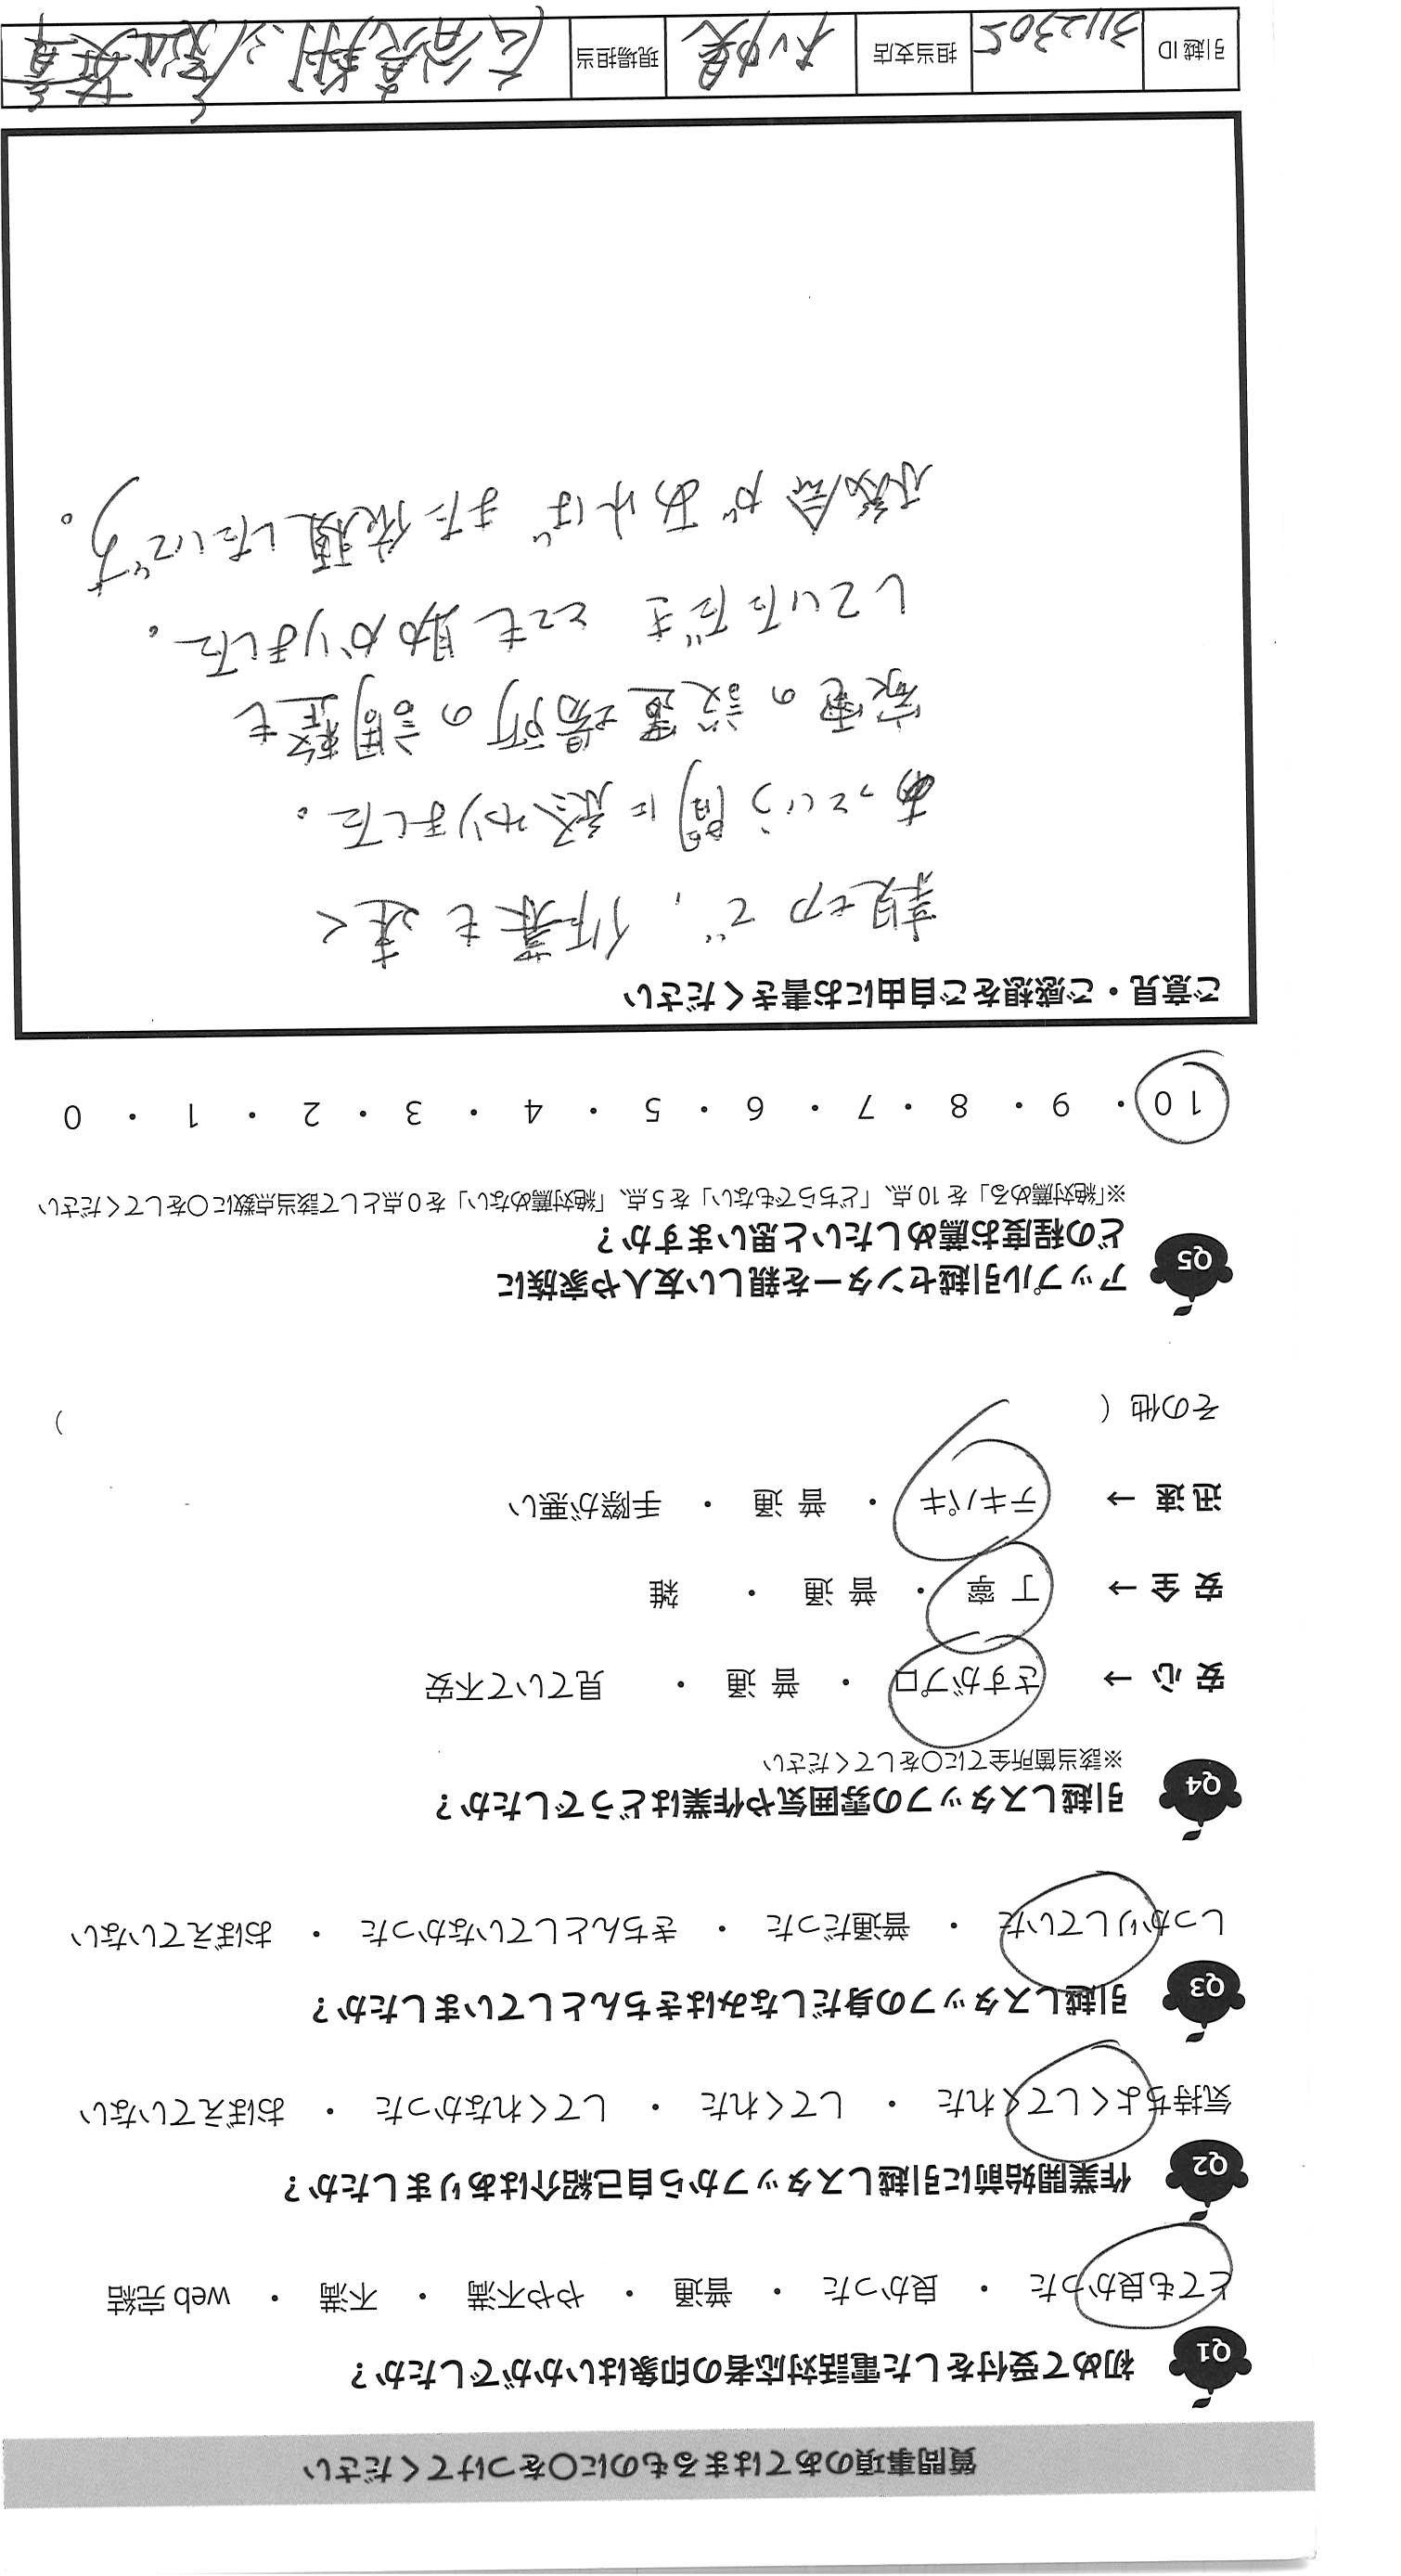 質問事項のあてはまるものに○をつけてください
Q1 初めて受付をした電話対応者の印象はいかがでしたか？
とても良かった ・ 良かった ・ 普通 ・ やや不満 ・ 不満 ・ web 完結
Q2 作業開始前に引越しスタッフから自己紹介はありましたか？
気持ちよくしてくれた ・ してくれた ・ してくれなかった ・ おぼえていない
Q3 引越しスタッフの身だしなみはきちんとしていましたか？
しっかりしていた ・ 普通だった ・ きちんとしていなかった ・ おぼえていない
Q4 引越しスタッフの雰囲気や作業はどうでしたか？
※該当箇所全てに○をしてください
安心 → さすがプロ ・ 普通 ・ 見ていて不安
安全 → 丁寧 ・ 普通 ・ 雑
迅速 → テキパキ ・ 普通 ・ 手際が悪い
その他（ ）
Q5 アップル引越センターを親しい友人や家族に
どの程度お薦めしたいと思いますか？
※「絶対薦める」を 10 点、「どちらでもない」を 5 点、「絶対薦めない」を 0 点として該当点数に○をしてください
10 ・ 9 ・ 8 ・ 7 ・ 6 ・ 5 ・ 4 ・ 3 ・ 2 ・ 1 ・ 0
ご意見・ご感想をご自由にお書きください
親切で、作業も速く
あっという間に終わりました。
家電の設置場所の調整も
していただき とても助かりました。
機会があればまた依頼したいです。
引越 ID 3112305 担当支店 現場担当